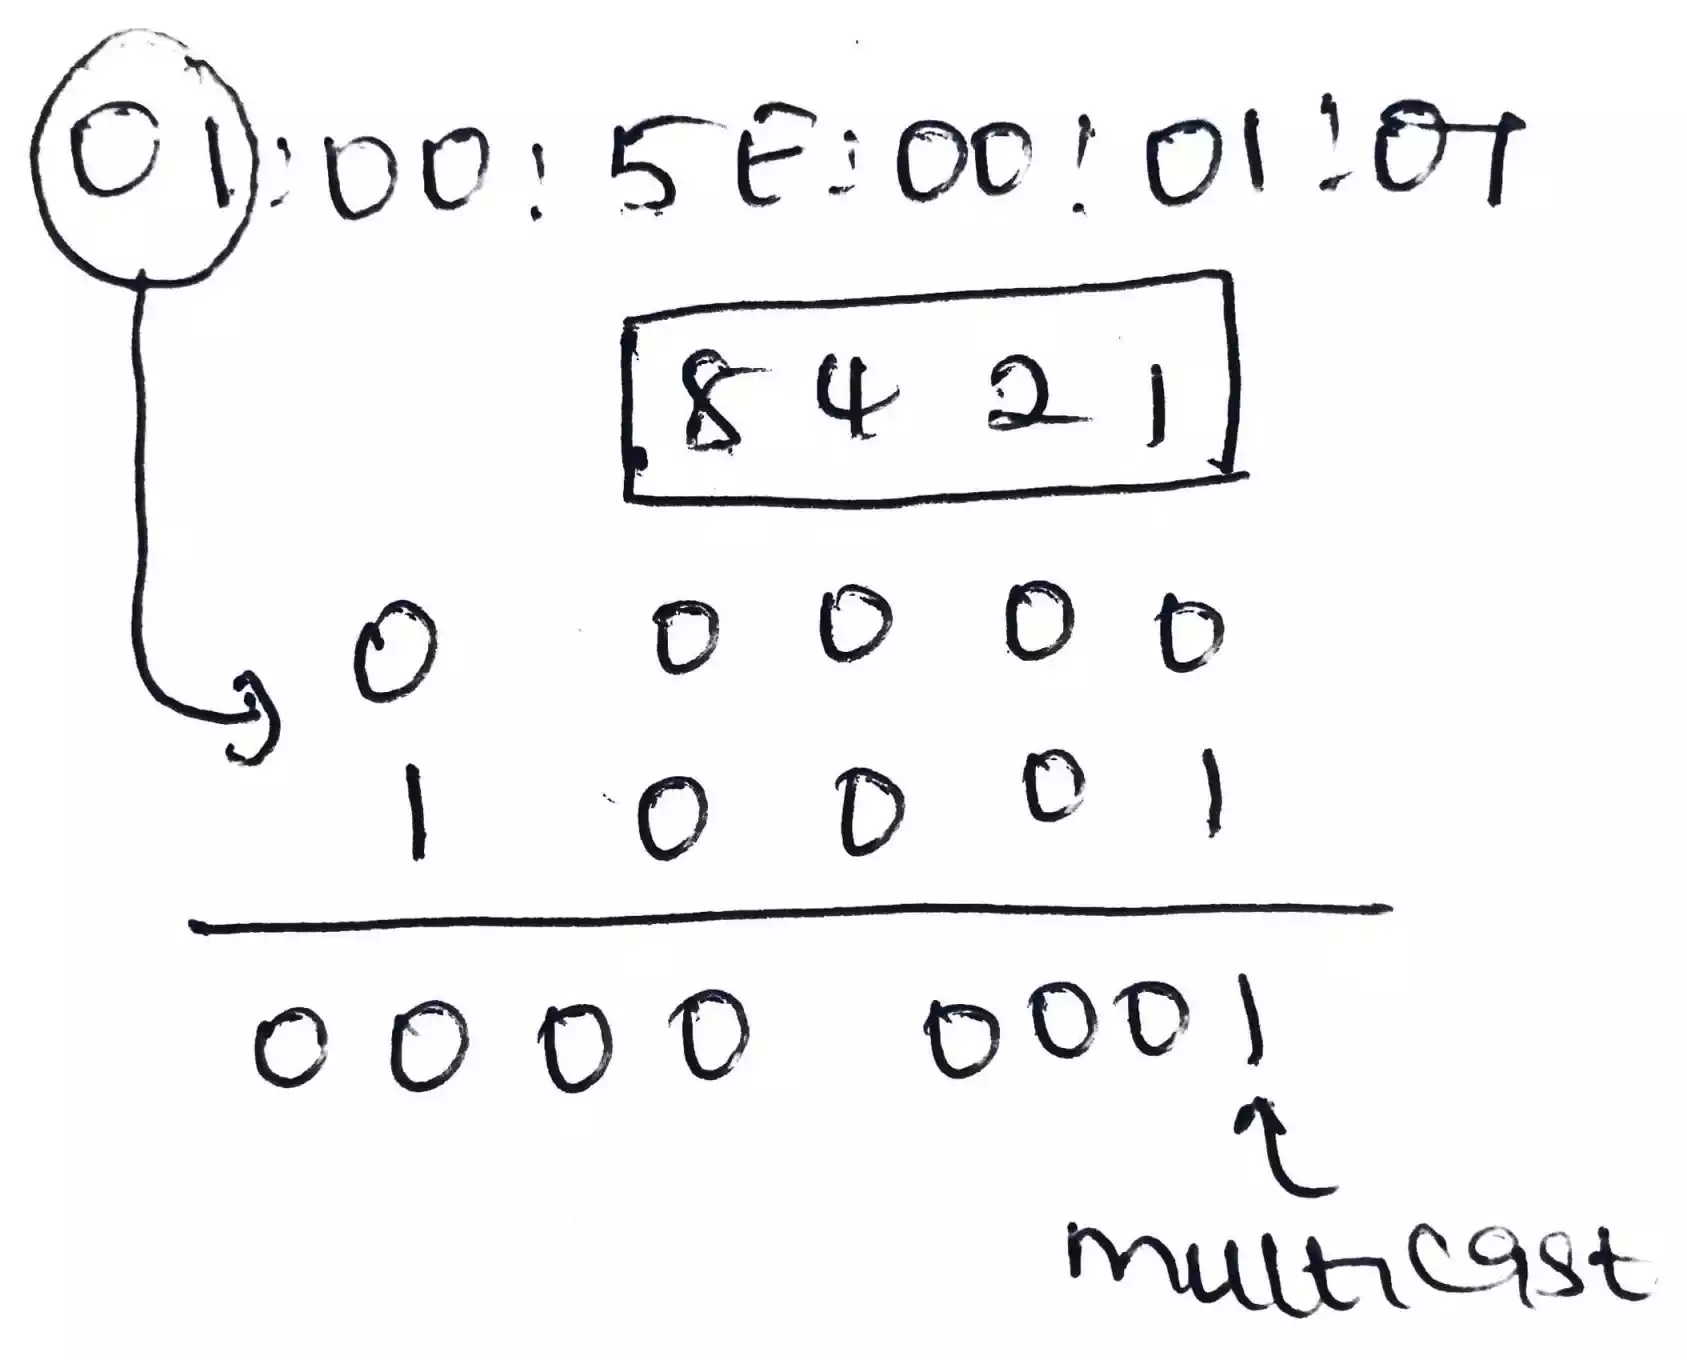 01:00:5E:00:01:01
8 4 2 1
0 0 0 0 0
1 0 0 0 1
0 0 0 0 0 0 0 1
multicast